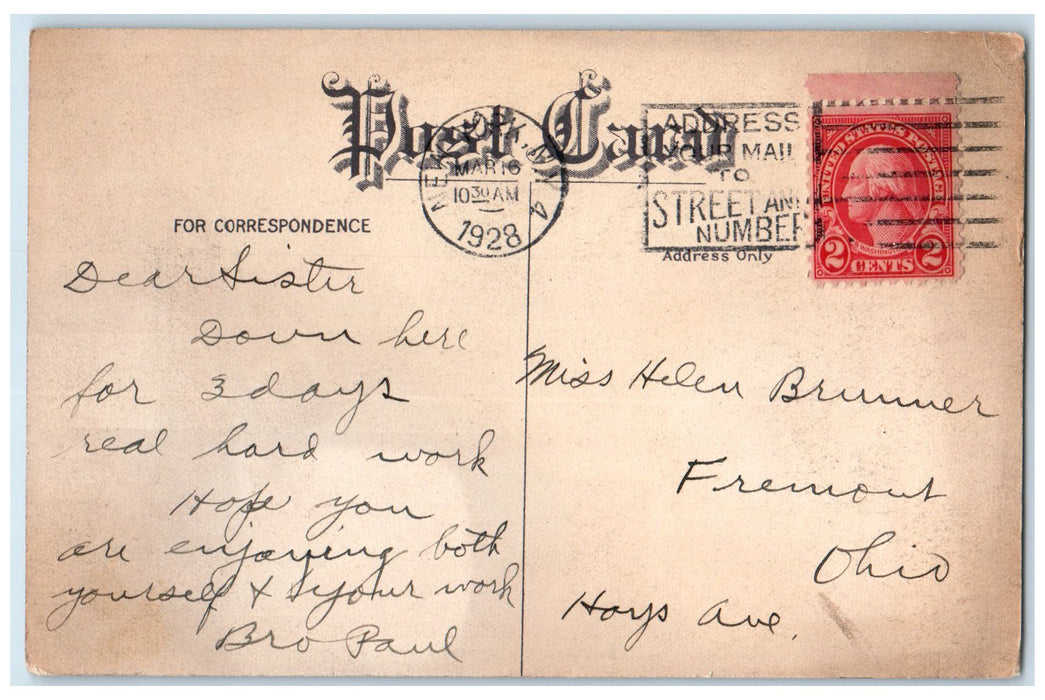 Post Card
NEW YORK, N.Y. 4
MAR 16
10 30 AM
1928
ADDRESS
YOUR MAIL
TO
STREET AND
NUMBER
UNITED STATES POSTAGE
WASHINGTON
2 CENTS 2
FOR CORRESPONDENCE
Address Only
Dear Sister
Down here
for 3 days
real hard work
Hope you
are enjoying both
yourself & your work
Bro Paul
Miss Helen Brunner
Fremont
Ohio
Hays Ave.